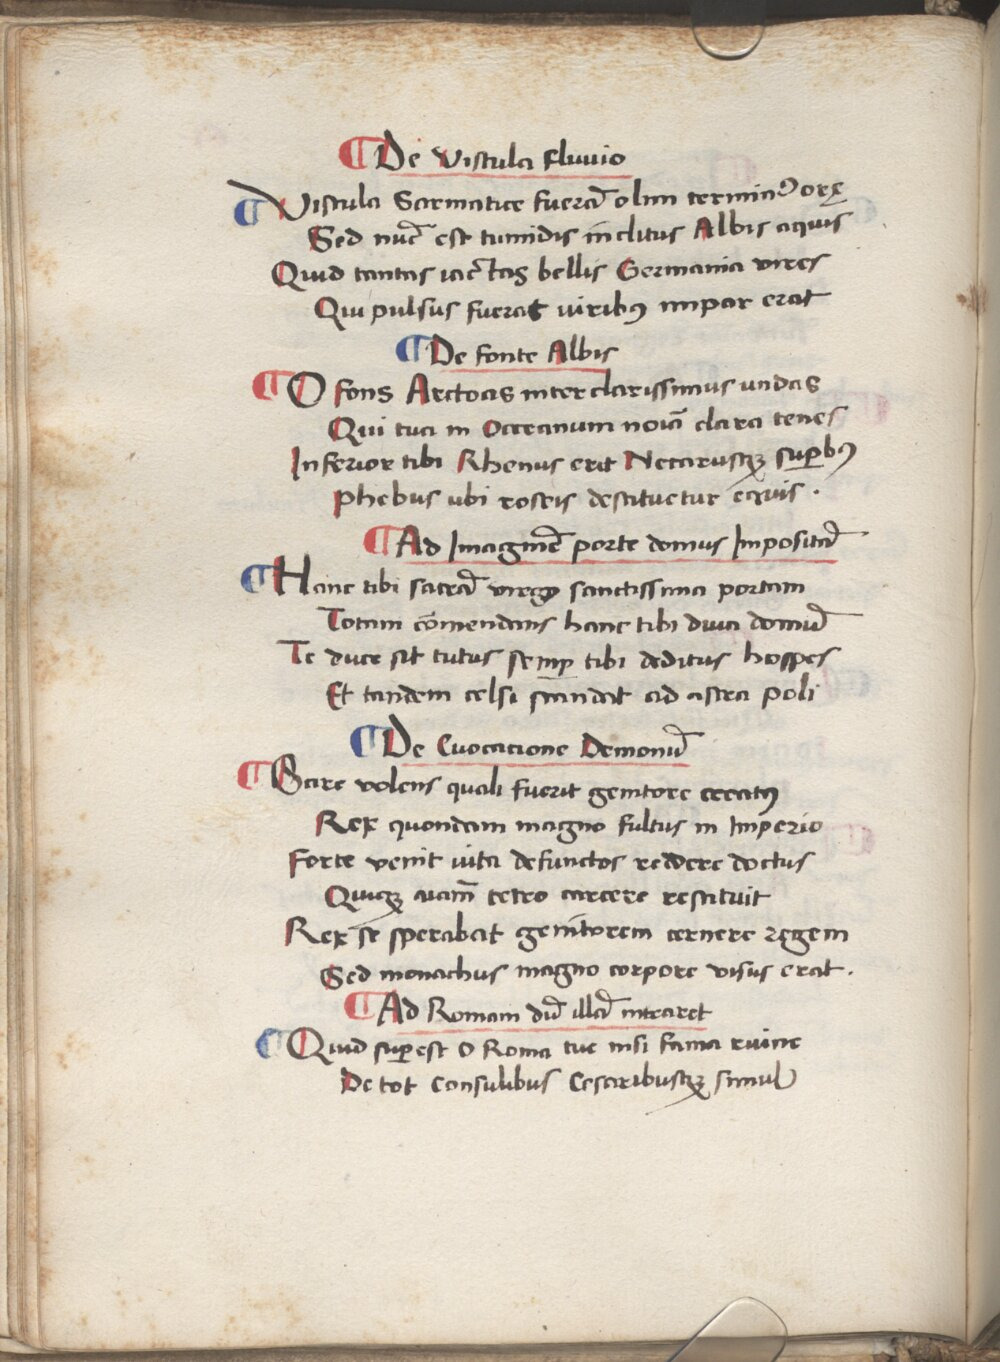 De Vistula Fluuio
Vistula Sarmatice fuerā olim terminꝰ orę
Sed nūc est tumidis inclitus Albis aquis
Quid tantas iactas bellis Germania vires
Qui pulsus fuerat viribꝰ impar erat
De fonte Albis
O fons Arctoas inter clarissimus undas
Qui tua in Occeanum noīa clara tenes
Inferior tibi Rhenus erit Necarusqꝫ suꝑbꝰ
Phebus ubi roseis destituetur equis .
Ad Imaginē porte domus Impositā
Hanc tibi sacrā virgo sanctissima portam
Totam cōmendans hanc tibi diua domū
Te duce sit tutus semꝑ tibi deditus hospes
Et tandem celsi scandat ad astra poli
De Euocatione Demonū
Scire volens quali fuerit genitore creatꝰ
Rex quondam magno fultus in Imperio
Forte venit vita defunctos reddere doctus
Quiqꝫ aīam tetro carcere restituit
Rex se sperabat genitorem cernere regem
Sed monachus magno corpore visus erat .
Ad Romam dū illā intraret
Quid suꝑest O Roma tue nisi fama ruine
De tot Consulibus Cesaribusqꝫ simul